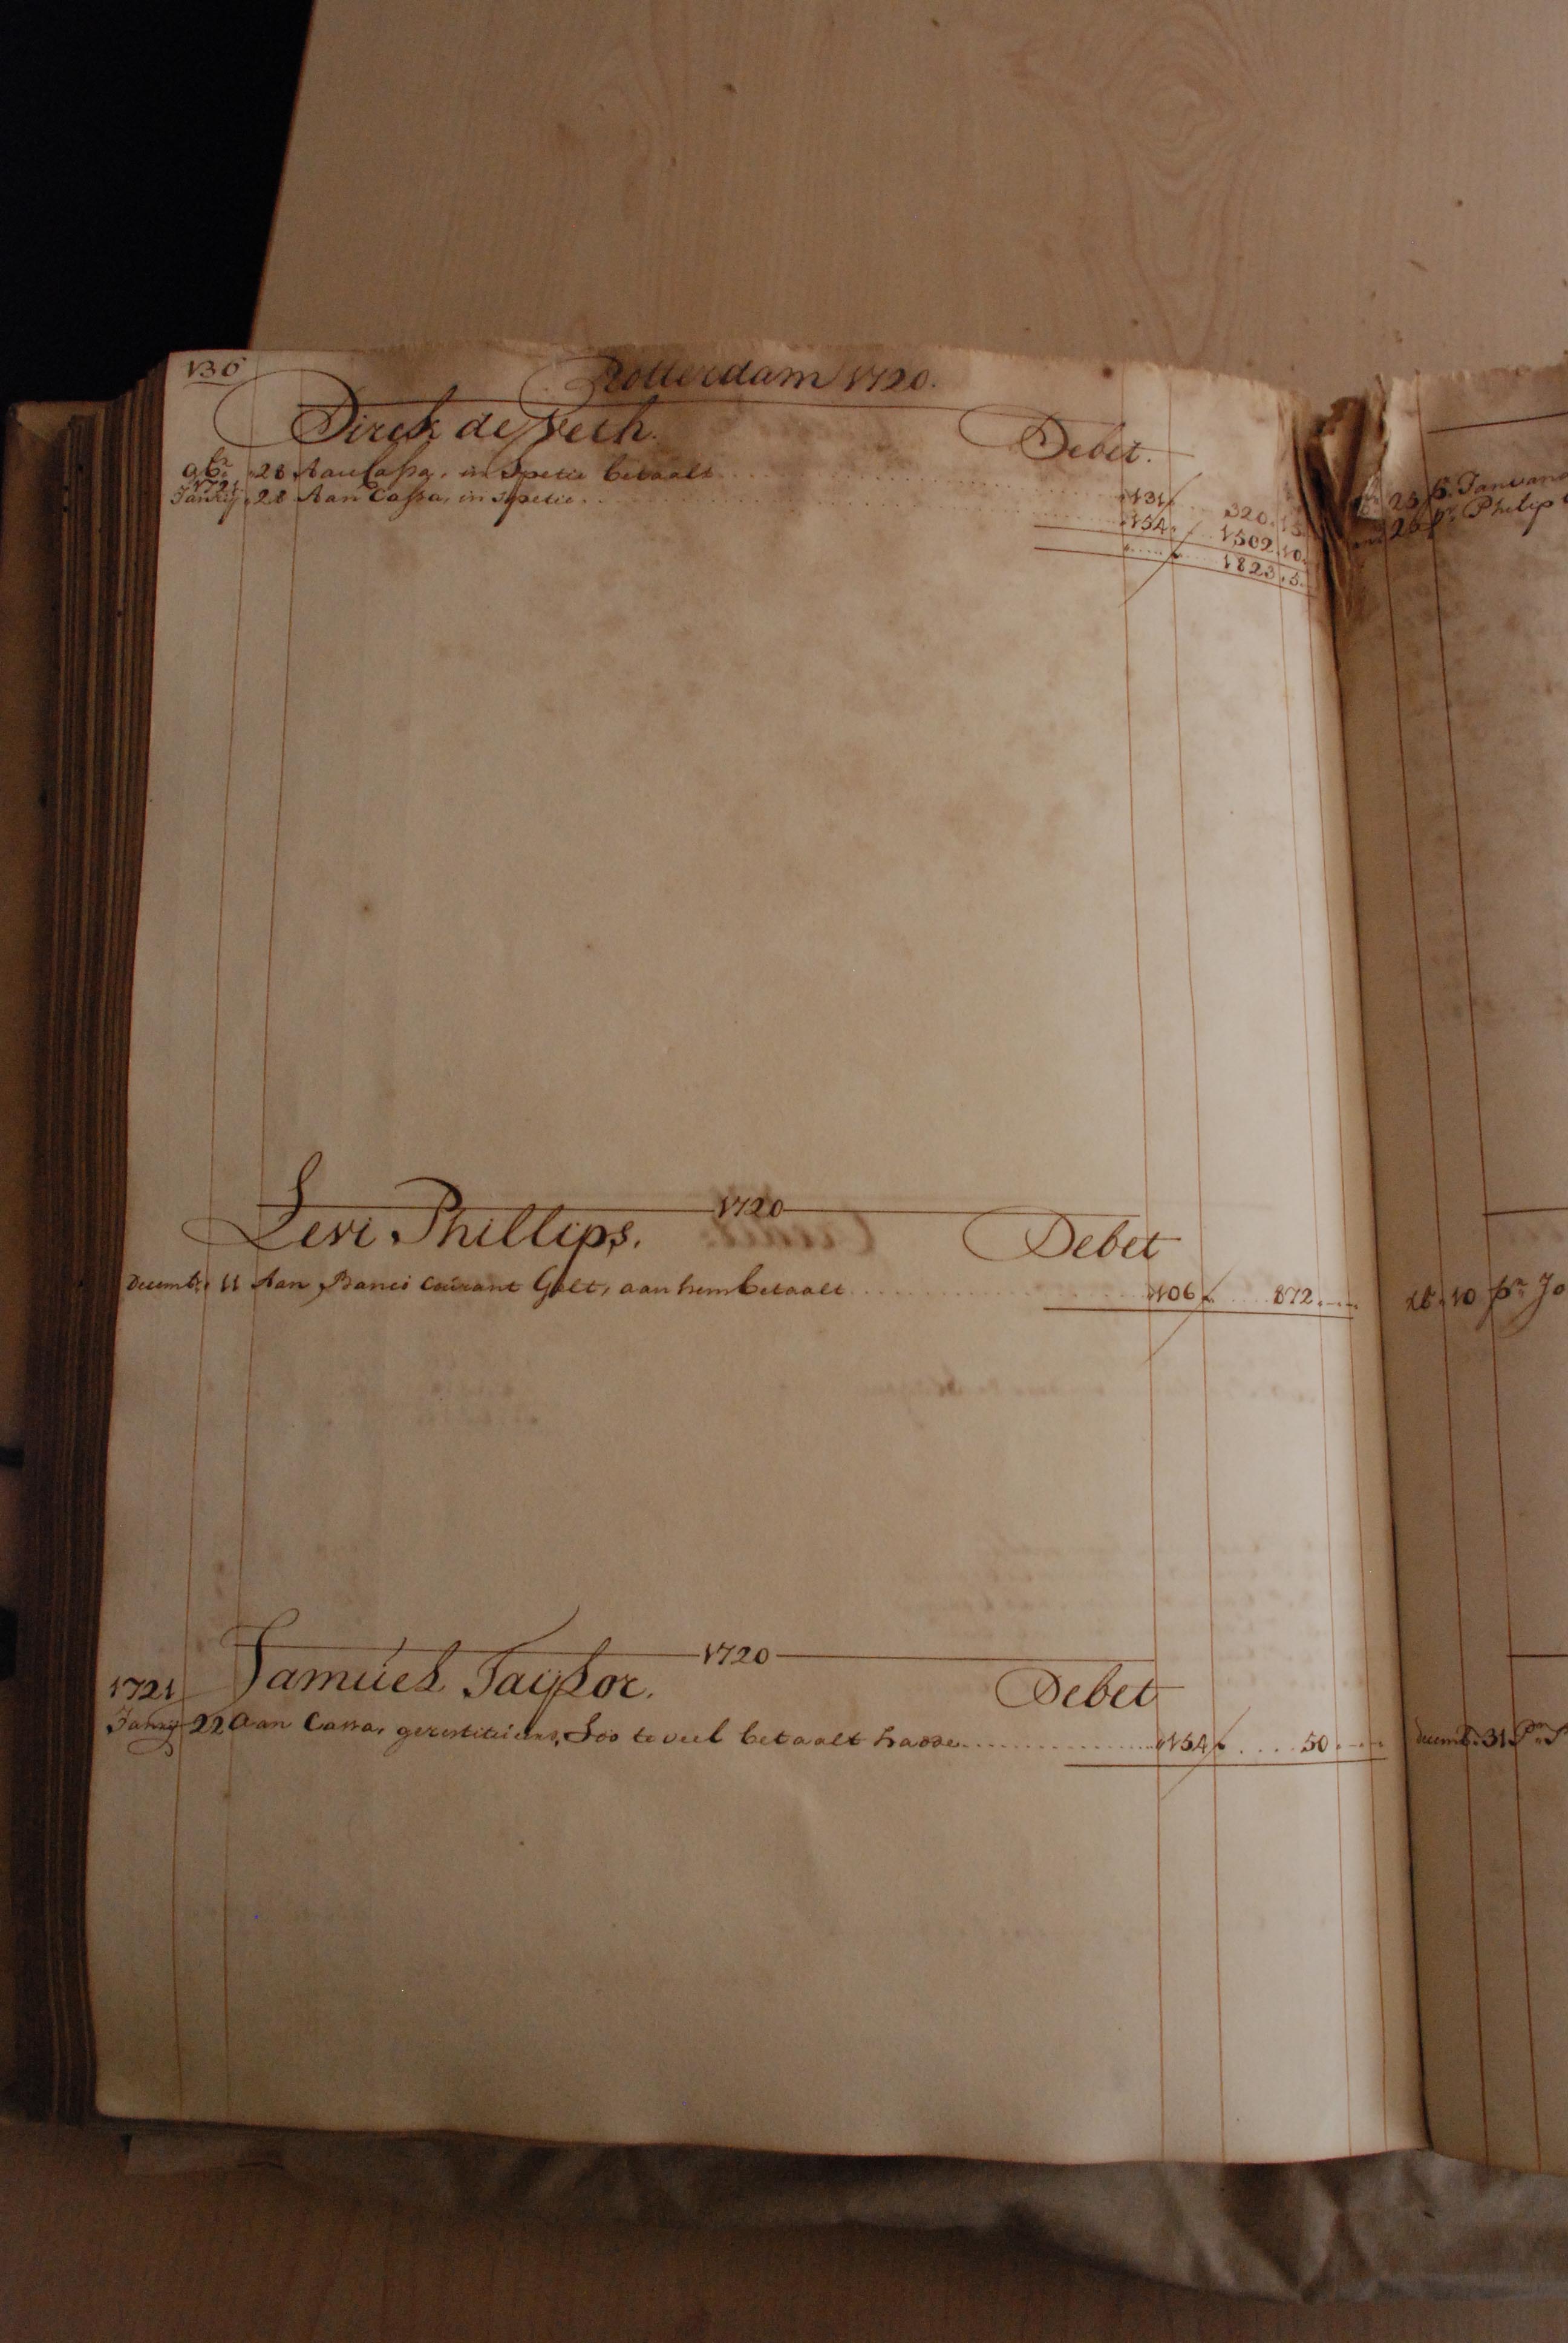 136
Rotterdam 1720.
Dirck de Vech. Debet.
9b.r 28 Aan Cassa, in Spetie betaalt 131 320.15.
1721
Janrij 28 Aan Cassa, in spetie 154. 1502.10.
1823.5.
1720
Levi Phillips. Debet
Decemb. 11 Aan Banco Courant Gelt, aan hem betaalt 106 872
1720
Samuel Taijlor. Debet
1721
Janrij 22 Aan Cassa, gerestitueert, Soo te veel betaalt hadde 154 50
25 p.r Januario
Philip
10 p.r Jo
Decemb. 31 P.r S